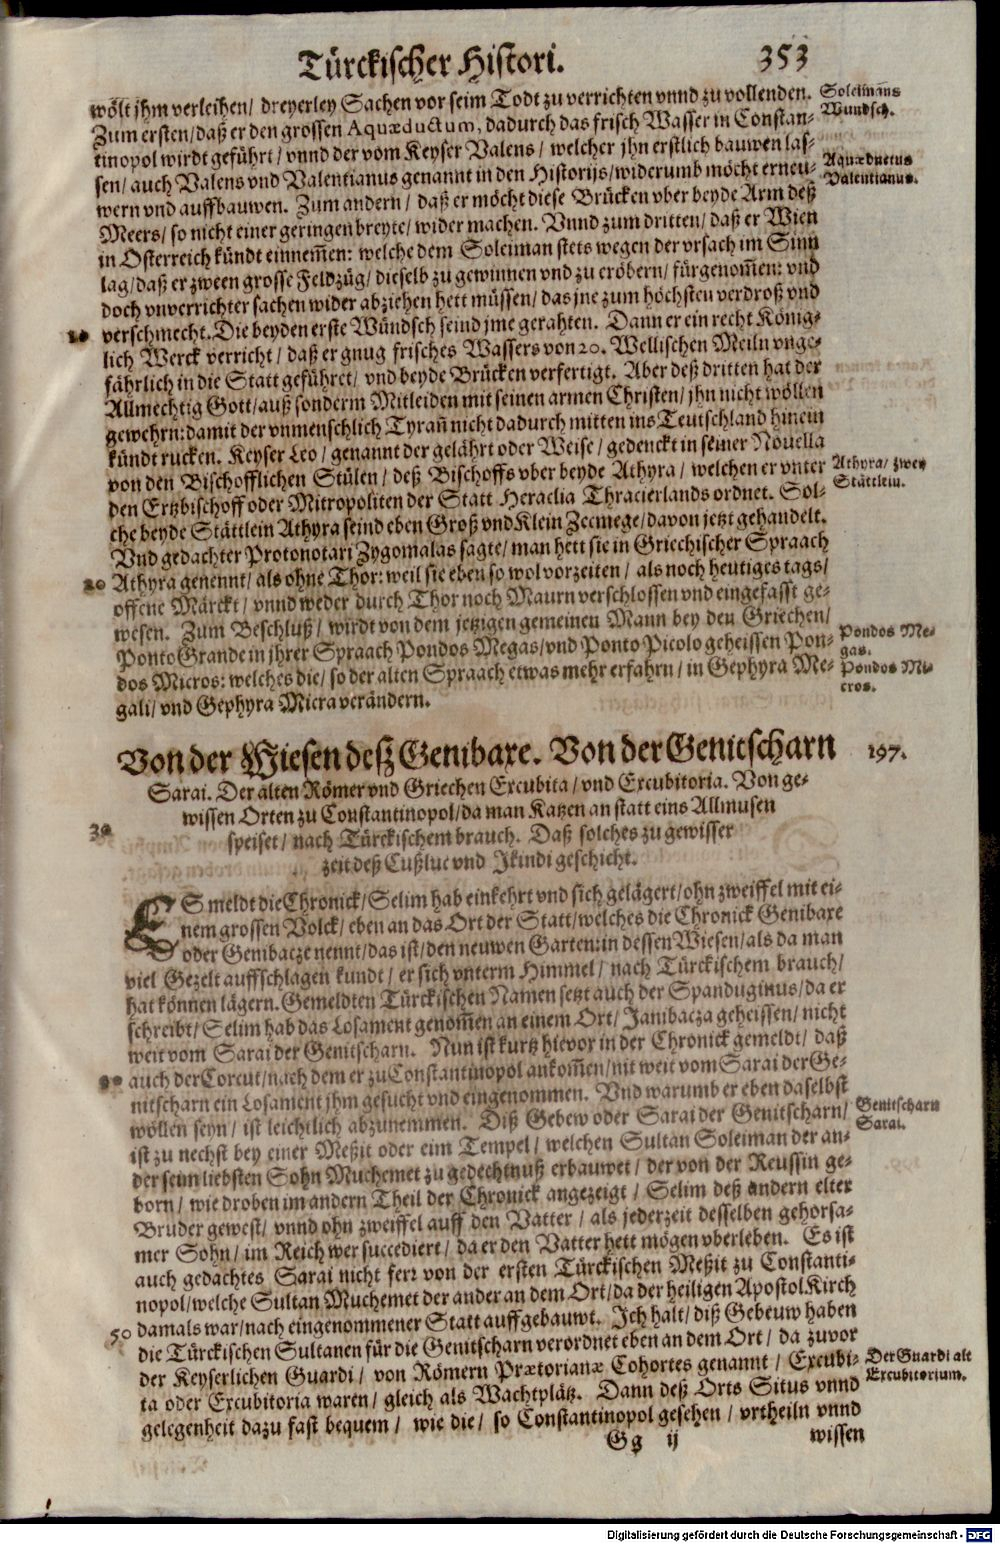 Türckischer Histori. 353
wölt jhm verleihen/ dreyerley Sachen vor seim Todt zu verrichten vnnd zu vollenden.
Zum ersten/ daß er den grossen Aquæductum, dadurch das frisch Wasser in Constan-
tinopol wirdt geführt/ vnnd der vom Keyser Valens/ welcher jhn erstlich bauwen las-
sen/ auch Valens vnd Valentianus genannt in den Historijs/ widerumb möcht erneu-
wern vnd auffbauwen. Zum andern/ daß er möcht diese Brücken vber beyde Arm deß
Meers/ so nicht einer geringen breyte/ wider machen. Vnnd zum dritten/ daß er Wien
in Osterreich kündt einnem̃en: welche dem Soleiman stets wegen der vrsach im Sinn
lag/ daß er zween grosse Feldzüg/ dieselb zu gewinnen vnd zu eröbern/ fürgenom̃en: vnd
doch vnverrichter sachen wider abziehen hett müssen/ das jne zum höchsten verdroß vnd
verschmecht. Die beyden erste Wündsch seind jme gerahten. Dann er ein recht König-
lich Werck verricht/ daß er gnug frisches Wassers von 20. Wellischen Meiln vnge-
fährlich in die Statt geführet/ vnd beyde Brücken verfertigt. Aber deß dritten hat der
Allmechtig Gott/ auß sonderm Mitleiden mit seinen armen Christen/ jhn nicht wöllen
gewehrn: damit der vnmenschlich Tyrañ nicht dadurch mitten ins Teutschland hinein
kündt rucken. Keyser Leo/ genannt der gelährt oder Weise/ gedenckt in seiner Nouella
von den Bischofflichen Stülen/ deß Bischoffs vber beyde Athyra/ welchen er vnter
den Ertzbischoff oder Mitropoliten der Statt Heraclia Thracierlands ordnet. Sol-
che beyde Stättlein Athyra seind eben Groß vnd Klein Zecmege/ davon jetzt gehandelt.
Vnd gedachter Protonotari Zygomalas sagte/ man hett sie in Griechischer Spraach
Athyra genennt/ als ohne Thor: weil sie eben so wol vorzeiten/ als noch heutiges tags/
offene Märckt/ vnnd weder durch Thor noch Maurn verschlossen vnd eingefasst ge-
wesen. Zum Beschluß/ wirdt von dem jetzigen gemeinen Mann bey den Griechen/
Ponto Grande in jhrer Spraach Pondos Megas/ vnd Ponto Picolo geheissen Pon-
dos Micros: welches die/ so der alten Spraach etwas mehr erfahrn/ in Gephyra Me-
gali/ vnd Gephyra Micra verändern.
Soleimans
Wundsch.
Aquæductus
Valentianus.
Athyra/ zwey
Stättlein.
Pondos Me-
gas.
Pondos Mi-
cros.
20
Von der Wiesen deß Genibaxe. Von der Genitscharn 197.
Sarai. Der alten Römer vnd Griechen Excubita/ vnd Excubitoria. Von ge-
wissen Orten zu Constantinopol/ da man Katzen an statt eins Allmusen
speiset/ nach Türckischem brauch. Daß solches zu gewisser
zeit deß Cußluc vnd Ikindi geschicht.
30
ES meldt die Chronick/ Selim hab einkehrt vnd sich gelägert/ ohn zweiffel mit ei-
nem grossen Volck/ eben an das Ort der Statt/ welches die Chronick Genibaxe
oder Genibacze nennt/ das ist/ den neuwen Garten: in dessen Wiesen/ als da man
viel Gezelt auffschlagen kundt/ er sich vnterm Himmel/ nach Türckischem brauch/
hat können lägern. Gemeldten Türckischen Namen setzt auch der Spanduginus/ da er
schreibt/ Selim hab das Losament genom̃en an einem Ort/ Janibacza geheissen/ nicht
weit vom Sarai der Genitscharn. Nun ist kurtz hievor in der Chronick gemeldt/ daß
auch der Corcut/ nach dem er zu Constantinopol ankom̃en/ nit weit vom Sarai der Ge-
nitscharn ein Losament jhm gesucht vnd eingenommen. Vnd warumb er eben daselbst
wöllen seyn/ ist leichtlich abzunemmen. Diß Gebew oder Sarai der Genitscharn/
ist zu nechst bey einer Meßit oder eim Tempel/ welchen Sultan Soleiman der an-
der seim liebsten Sohn Muchemet zu gedechtnuß erbauwet/ der von der Reussin ge-
born/ wie droben im andern Theil der Chronick angezeigt/ Selim deß andern elter
Bruder gewest/ vnnd ohn zweiffel auff den Vatter/ als jederzeit desselben gehorsa-
mer Sohn/ im Reich wer succediert/ da er den Vatter hett mögen vberleben. Es ist
auch gedachtes Sarai nicht ferr von der ersten Türckischen Meßit zu Constanti-
nopol/ welche Sultan Muchemet der ander an dem Ort/ da der heiligen Apostol Kirch
damals war/ nach eingenommener Statt auffgebauwt. Ich halt/ diß Gebeuw haben
die Türckischen Sultanen für die Genitscharn verordnet eben an dem Ort/ da zuvor
der Keyserlichen Guardi/ von Römern Prætorianæ Cohortes genannt/ Excubi-
ta oder Excubitoria waren/ gleich als Wachtplätz. Dann deß Orts Situs vnnd
gelegenheit dazu fast bequem/ wie die/ so Constantinopol gesehen/ vrtheiln vnnd
Genitscharn
Sarai.
50
Der Guardi alt
Excubitorium.
Gg ij wissen
Digitalisierung gefördert durch die Deutsche Forschungsgemeinschaft - DFG